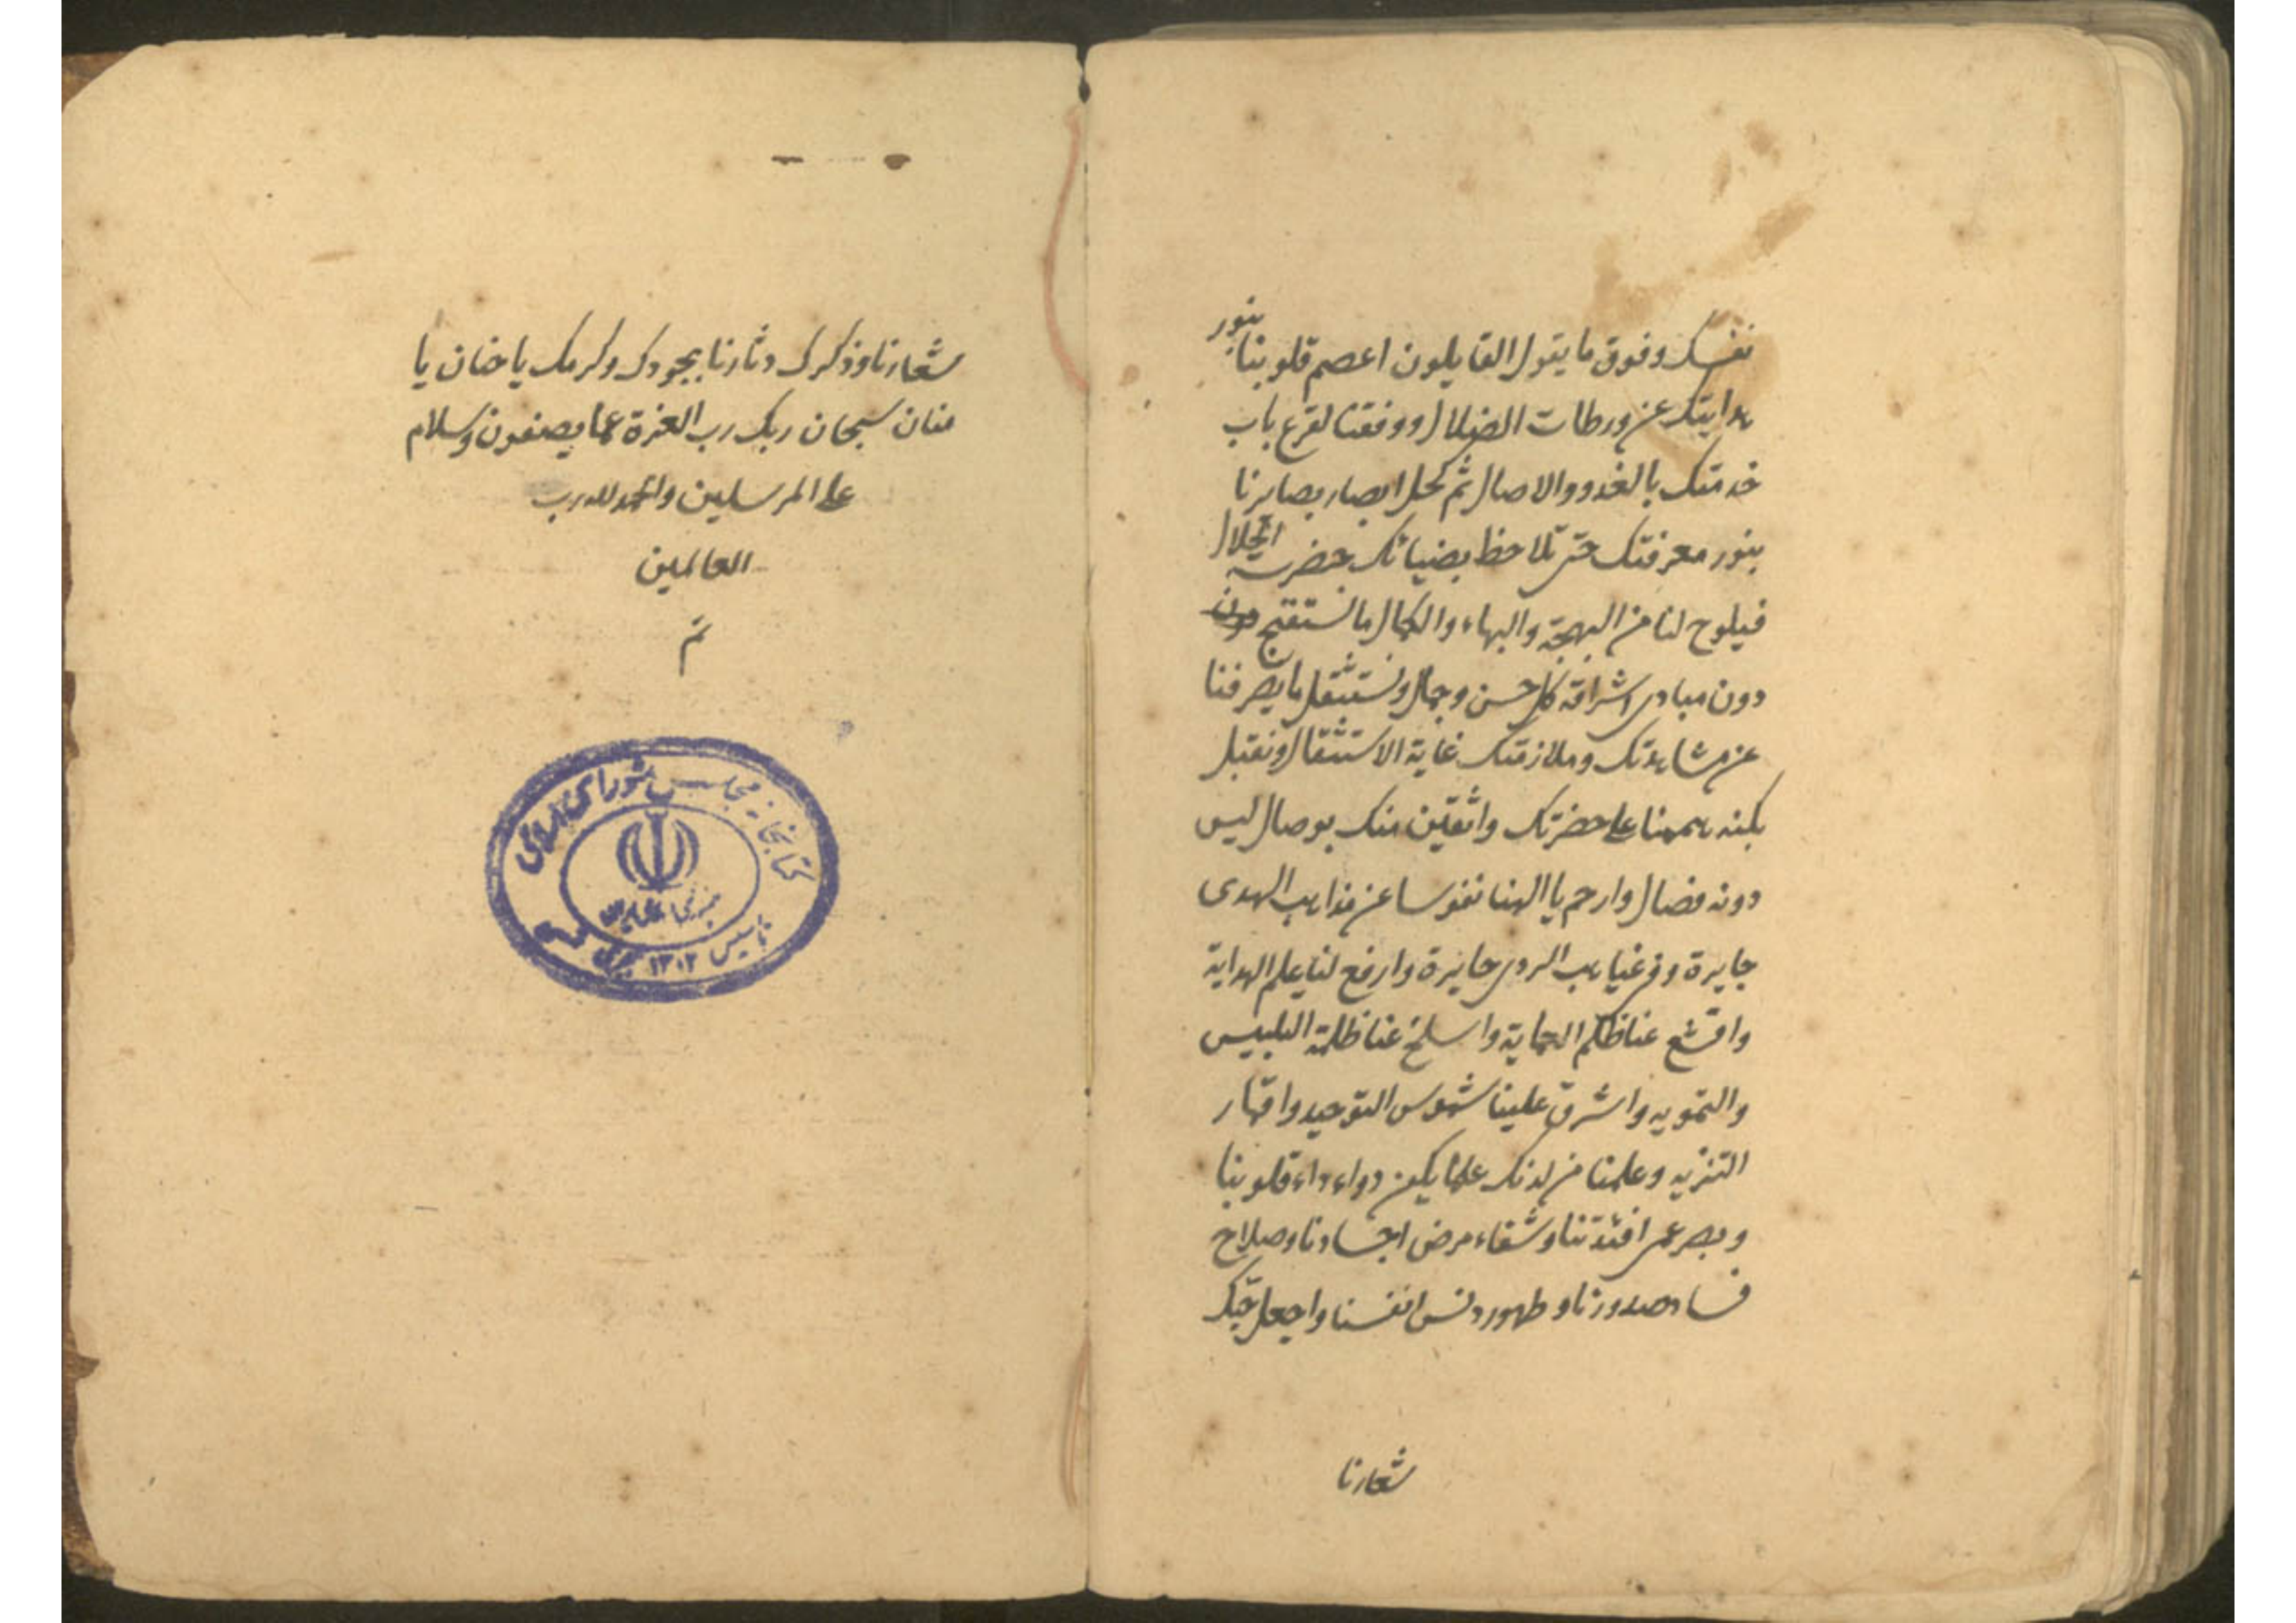 نفسک وفوق ما یقول القایلون اعصم قلوبنا بنور
هدایتک عن ورطات الضلال ووفقنا لقرع باب
خدمتک بالغدو والاصال ثم کحل ابصار بصایرنا
بنور معرفتک حتی تلاحظ بضیائک حضرت الجلال
فیلوح لنا من البهجة والبهاء والکمال ما نستقبح
دون مبادی اشراقه کل حسن وجمال ونستثقل ما یصرفنا
عن مشاهدتک وملازمتک غایة الاستثقال ونقبل
بکنه هممنا علی حضرتک واثقین منک بوصال لیس
دونه فصال وارحم یا الهنا نفوسا عن مذاهب الهدی
جایرة وفی غیاهب الردی حایرة وارفع لنا علم الهدایة
واقشع عنا ظلم العمایة واسلخ عنا ظلمة التلبیس
والتمویه واشرق علینا شموس التوحید واقمار
التنزیه وعلمنا من لدنک علما یکن دواء داء قلوبنا
وبصر عمی افئدتنا وشفاء مرض اجسادنا وصلاح
فساد صدورنا وطهور دنس انفسنا واجعل حبک
شعارنا
شعارنا وذکرک دثارنا بجودک وکرمک یا حنان یا
منان سبحان ربک رب العزة عما یصفون وسلام
علی المرسلین والحمد لله رب
العالمین
تم
کتابخانه مجلس شورای اسلامی
تاسیس ۱۳۰۲